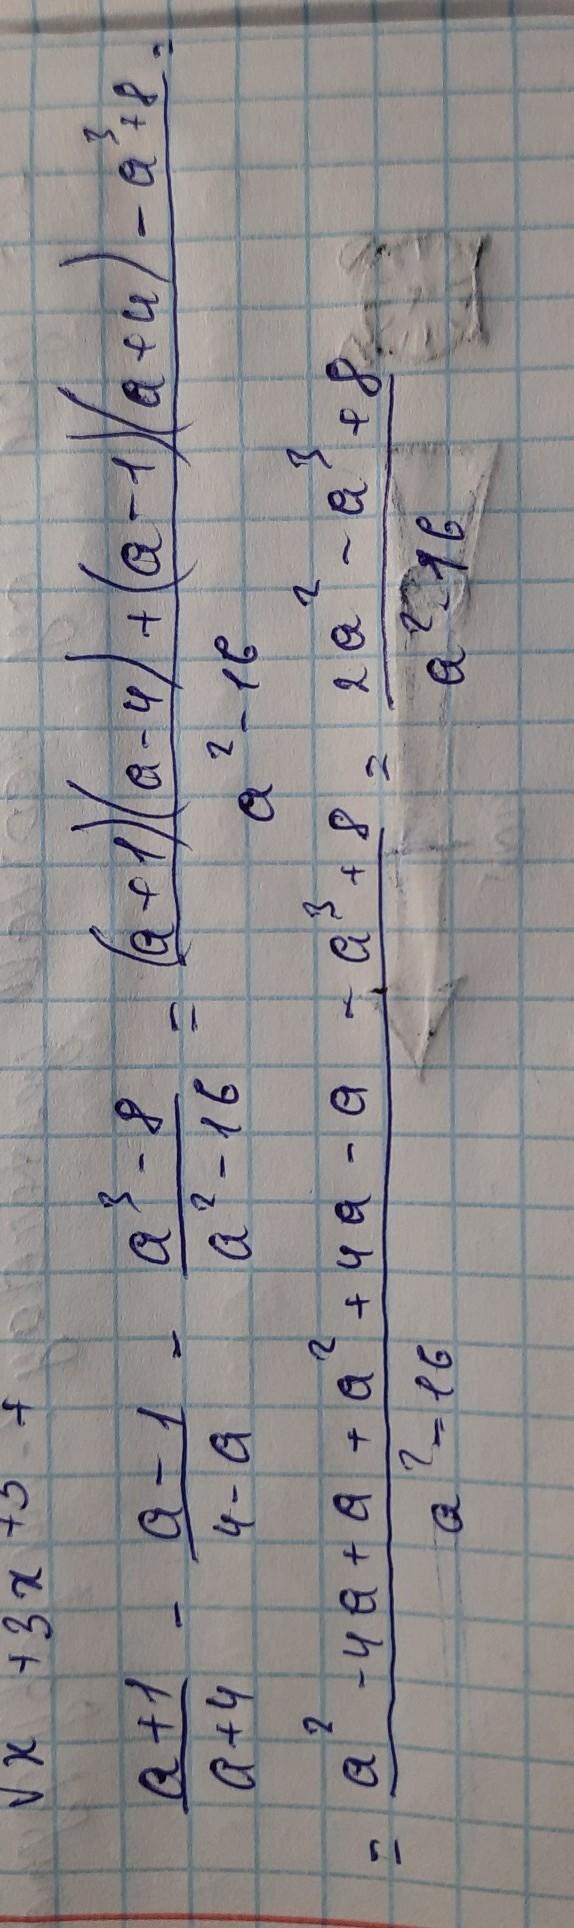 √x +3x +5 +
(a+1)/(a+4) - (a-1)/(4-a) - (a³-8)/(a²-16) = ((a+1)(a-4)+(a-1)(a+4)-a³+8)/(a²-16) =
= (a²-4a+a+a²+4a-a-a³+8)/(a²-16) = (2a²-a³+8)/(a²-16)